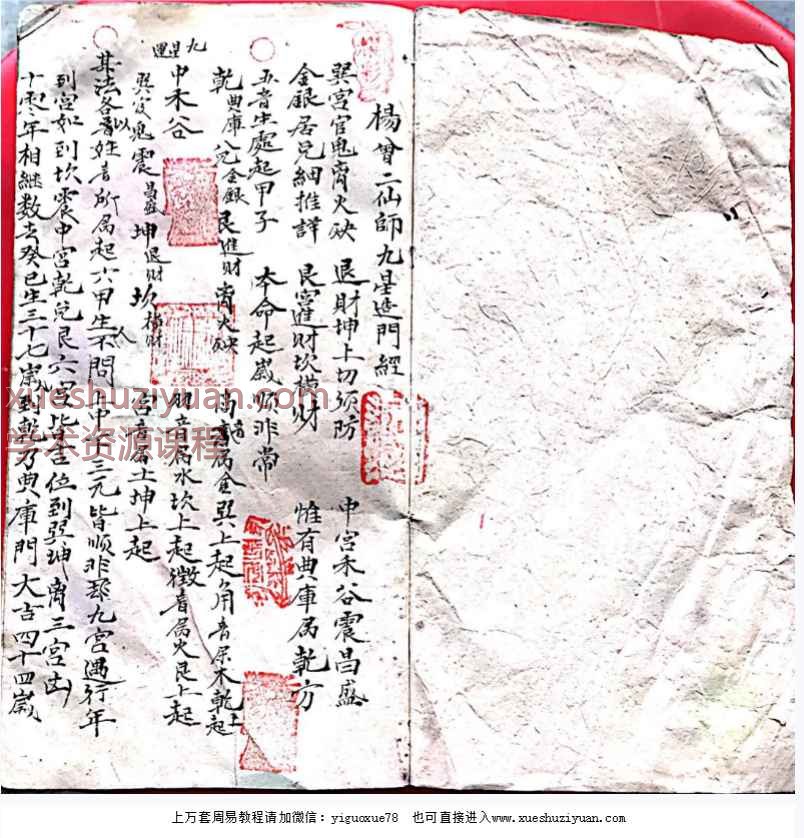 楊曾二仙師九星造門經
巽宮官鬼離火殃 退財坤上切須防 中宮禾谷震昌盛
金銀居兑細推詳 艮宮進財坎橫財 惟有典庫属乾方
五音生處起甲子 本命起歲順非常
乾典庫 兑金銀 艮進財 离火殃 商音属金巽上起角音属木乾上起
九星運
中禾谷 羽音属水坎上起徵音属火艮上起
巽官鬼震昌盛坤退財坎橫財 宮音属土坤上起
其法各以音姓音所属起六甲生人不問上中下三元皆順非郡九宮遇行年
到宮如到坎震中宮乾兑艮六宮皆吉位到巽坤离三宮凶
十零年相継数去癸巳生三十七歲到乾乃典庫門大吉四十四歲
xueshuziyuan.com
学术资源课程
上万套周易教程请加微信：yiguoxue78 也可直接进入www.xueshuziyuan.com